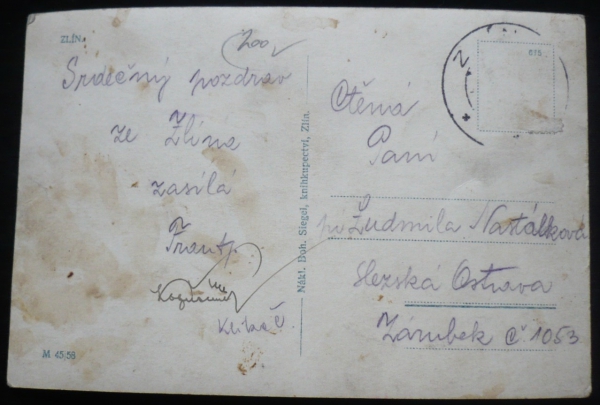 ZLÍN.
Srdečný pozdrav
ze Zlína
zasílá
Frant.
M 45/58
Nákl. Boh. Siegel, knihkupectví, Zlín.
675
Z
Ctěná
Paní
Ludmila Naštálková
Slezská Ostrava
Zárubek č 1053